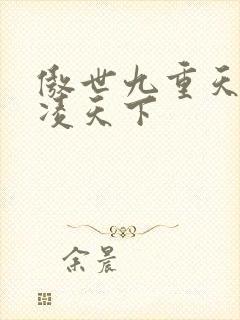 傲世九重天
凌天下
余晨